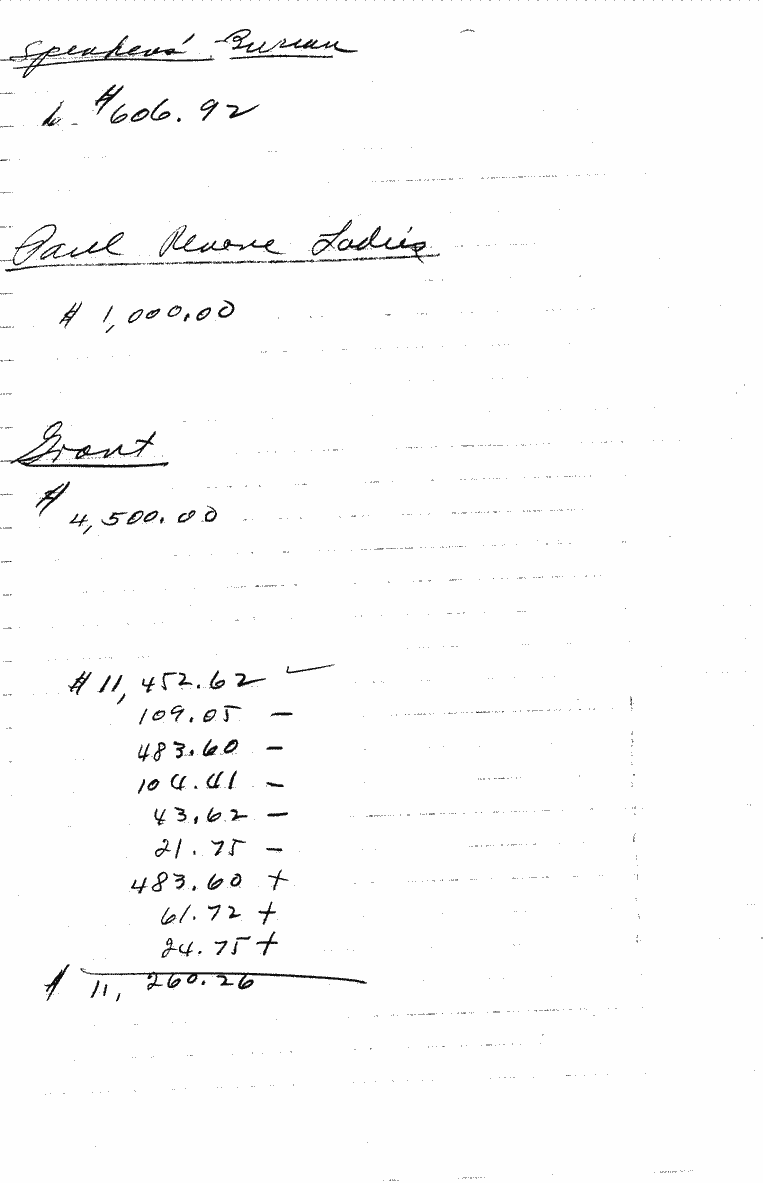 Speakers' Bureau
$606.92
Paul Revere Ladies
$ 1,000.00
Grant
$
4,500.00
$ 11,452.62 ✓
109.05 -
483.60 -
104.41 -
43.62 -
21.75 -
483.60 +
61.72 +
24.75 +
$ 11,260.26